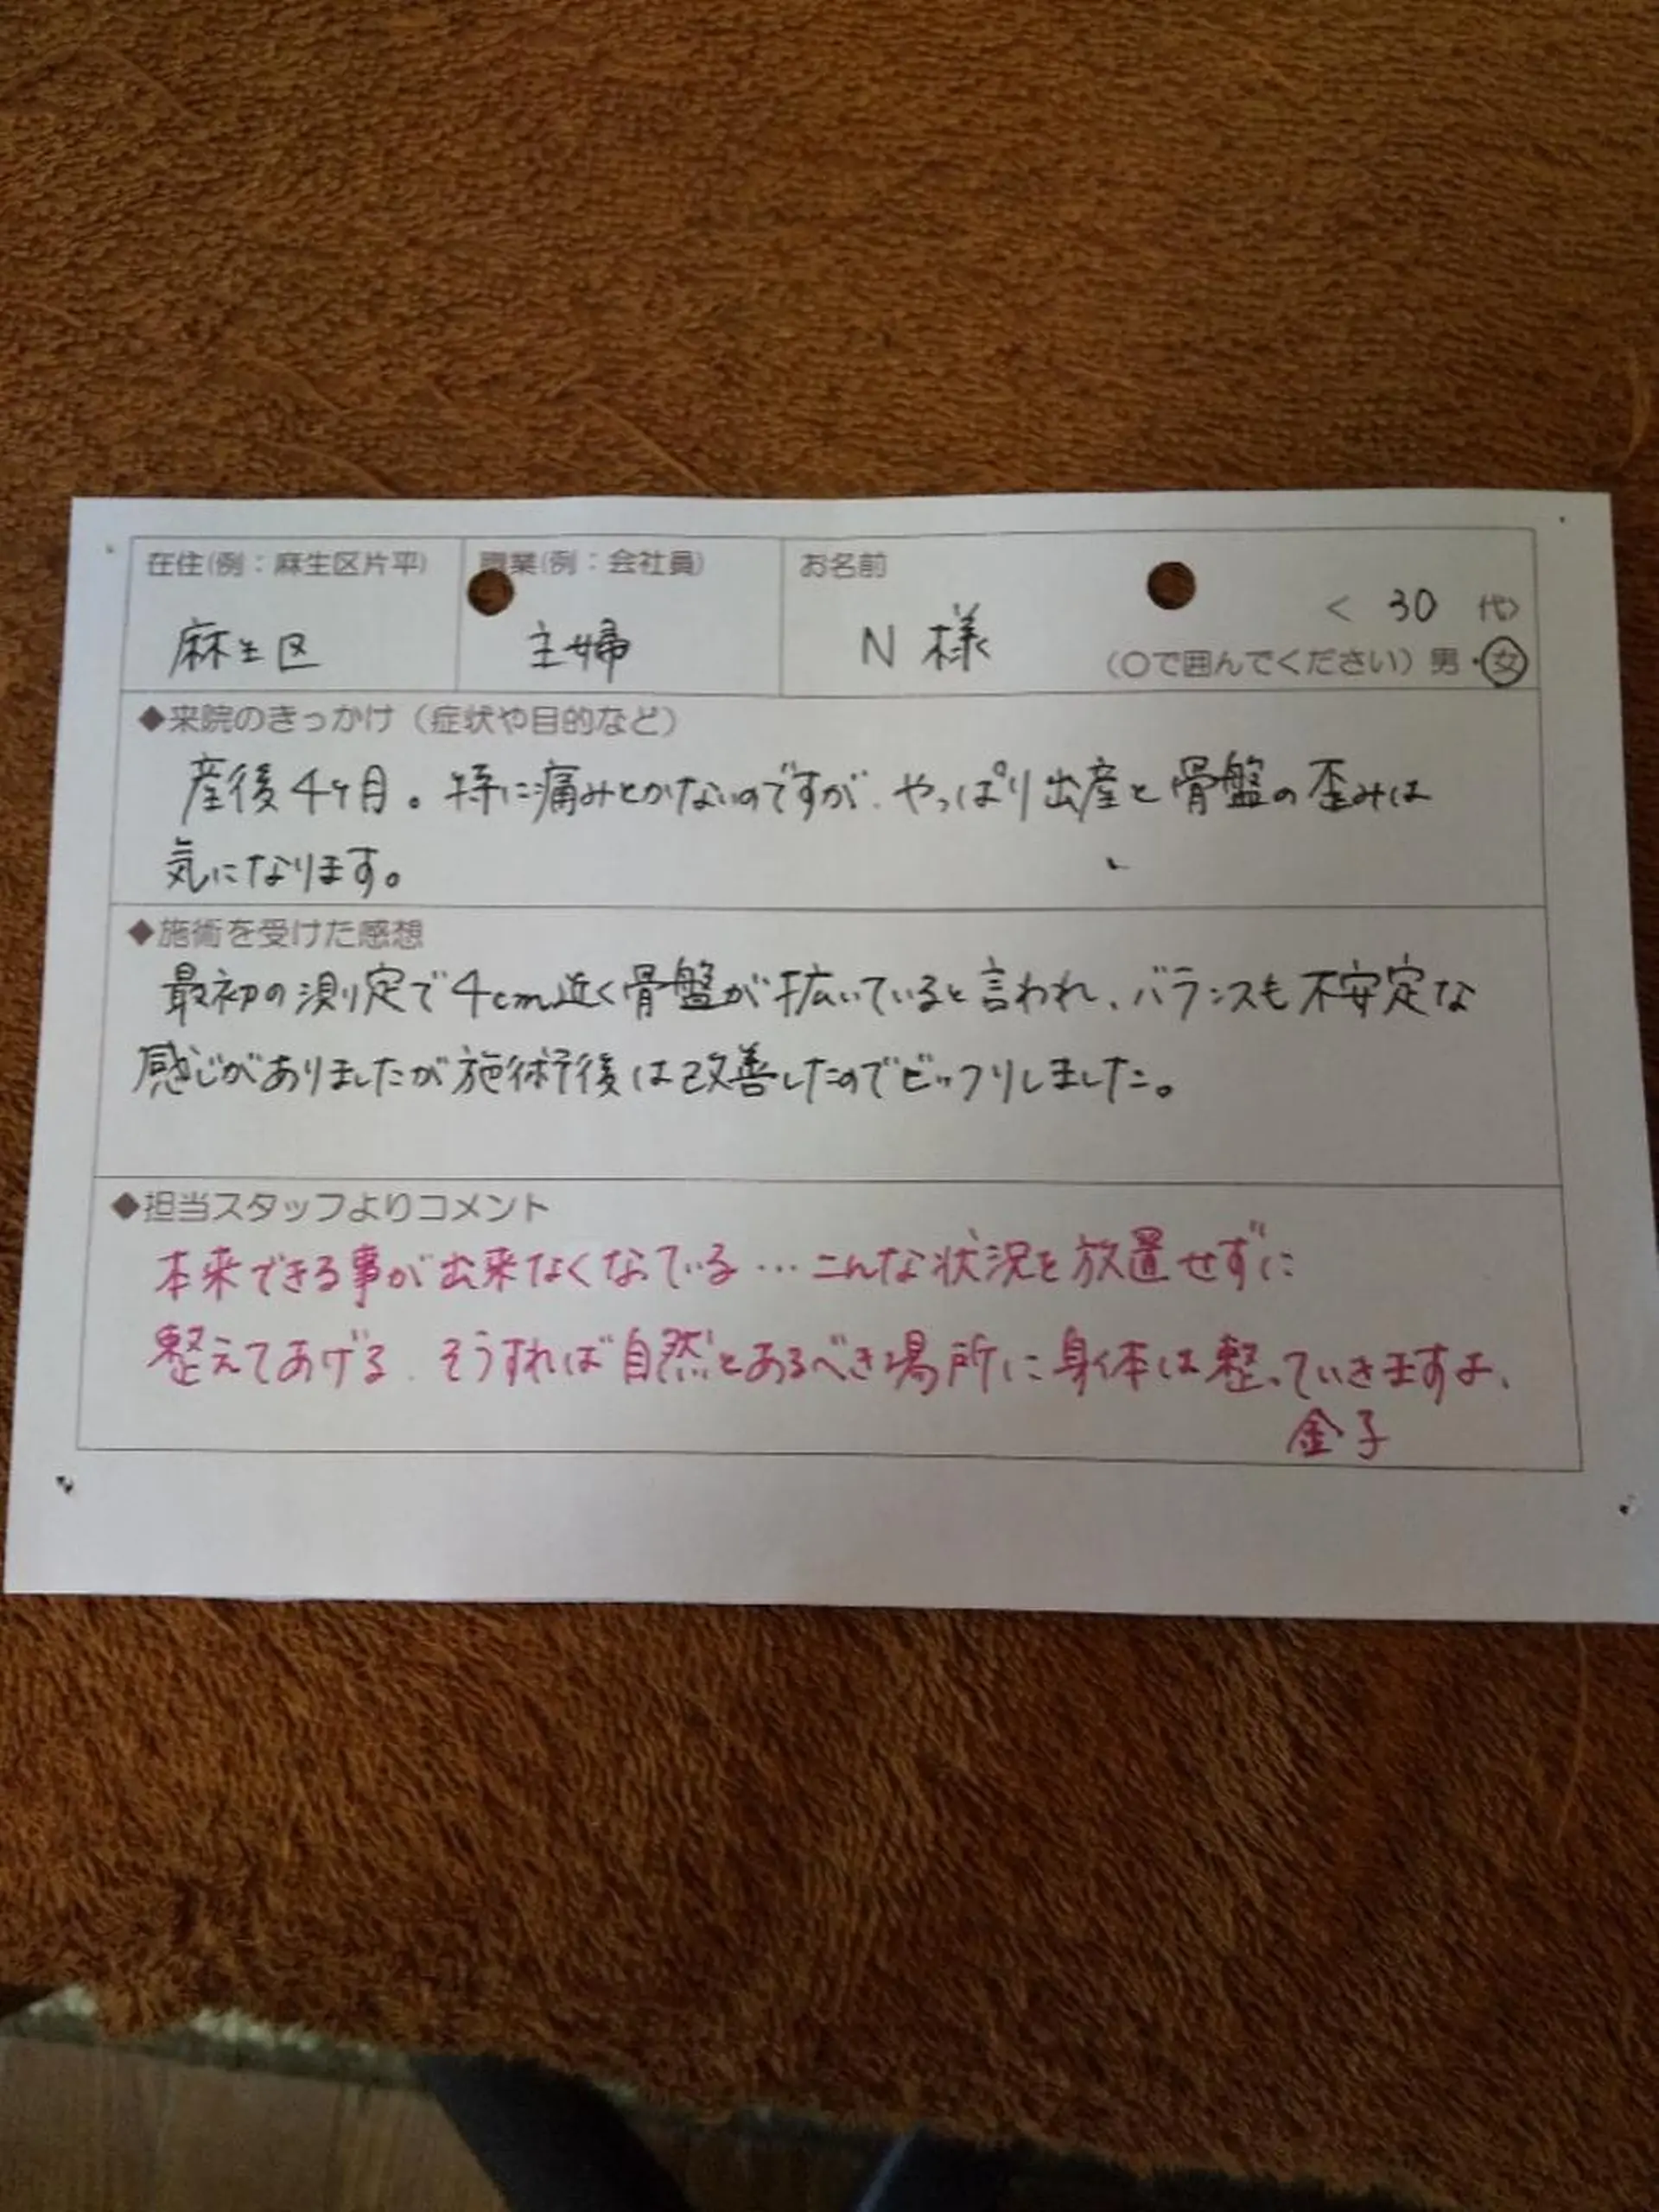 在住(例：麻生区片平)
麻生区
職業(例：会社員)
主婦
お名前
N 様
< 30 代>
(〇で囲んでください) 男・女
◆来院のきっかけ（症状や目的など）
産後4ヶ月。特に痛みとかないのですが、やっぱり出産と骨盤の歪みは
気になります。
◆施術を受けた感想
最初の測定で4cm近く骨盤が拡いていると言われ、バランスも不安定な
感じがありましたが施術後は改善したのでビックリしました。
◆担当スタッフよりコメント
本来できる事が出来なくなっている…こんな状況を放置せずに
整えてあげる。そうすれば自然とあるべき場所に身体は整っていきますよ。
金子